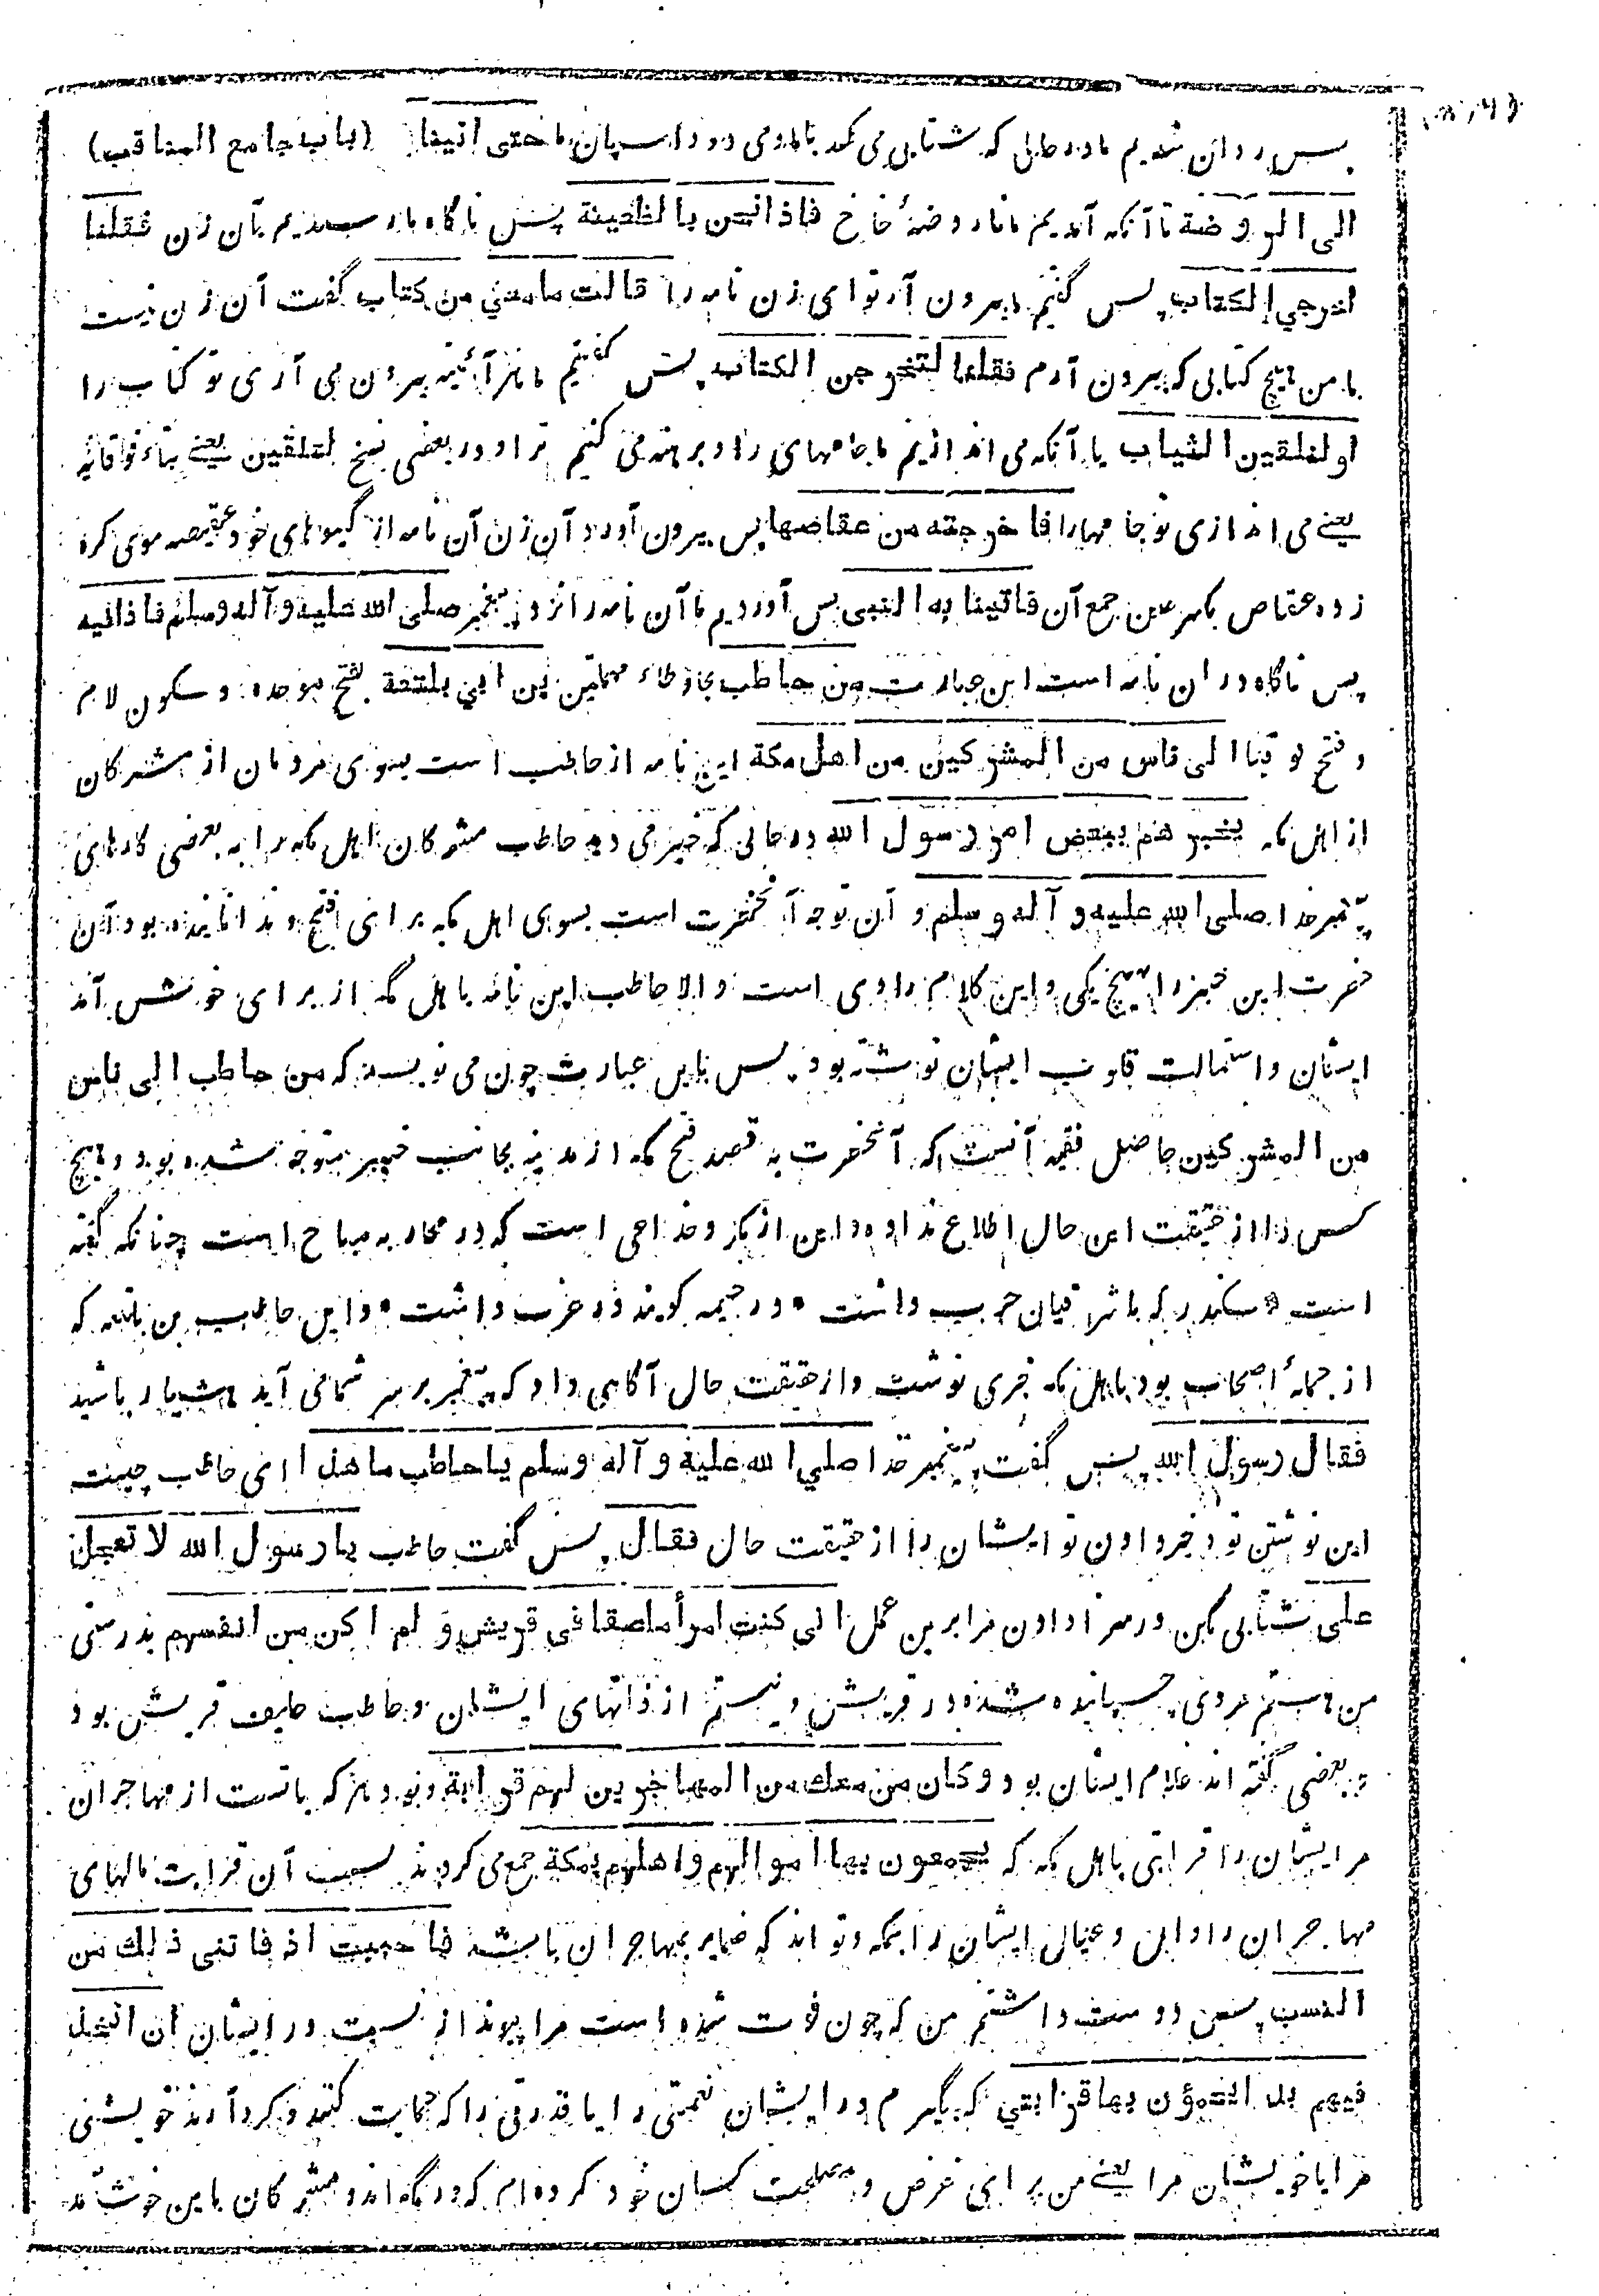 پس روان شدیم ما در حالی که شتابی می کند بامادوی دود اسپان ما حتی اتینا (باب جامع المناقب)
الی الروضة تا آنکه آمدیم ما تا روضهٔ خاخ فاذا نحن بالظعینة پس ناگاه ما رسیدیم بآن زن فقلنا
اخرجی الکتاب پس گفتیم ما بیرون آر تو ای زن نامه را قالت ما معی من کتاب گفت آن زن نیست
با من هیچ کتابی که بیرون آرم فقلنا لتخرجن الکتاب پس گفتیم ما هر آئینه بیرون می آری تو کتاب را
او لنلقین الثیاب یا آنکه می اندازیم ما جامهای را و برهنه می کنیم ترا و در بعضی نسخ لتلقین یعنے بتاء فوقانیه
یعنے می اندازی تو جامها را فاخرجته من عقاصها پس بیرون آورد آن زن آن نامه از گیسوهای خود عقیصه موی گره
زده عقاص بکسر عین جمع آن فاتینا به النبی پس آوردیم ما آن نامه را نزد پیغمبر صلی الله علیه و آله وسلم فاذا فیه
پس ناگاه در ان نامه است این عبارت من حاطب بحا و طاء مهملتین بن ابی بلتعة بفتح موحده و سکون لام
و فتح فوقیا الی ناس من المشرکین من اهل مکة این نامه از حاطب است بسوی مردمان از مشرکان
از اهل مکه یخبرهم ببعض امر رسول الله در حالی که خبر می دهد حاطب مشرکان اهل مکه را به بعضی کارهای
پیغمبر خدا صلی الله علیه و آله وسلم و آن توجه آنحضرت است بسوی اهل مکه برای فتح و ندانانیده بود آن
حضرت این خبر را بهیچ یکی و این کلام راوی است و الا حاطب این نامه باهل مکه از برای خوش آمد
ایشان و استمالت قلوب ایشان نوشته بود پس باین عبارت چون می نویسد که من حاطب الی ناس
من المشرکین حاصل قصه آنست که آنحضرت به قصد فتح مکه از مدینه بجانب خیبر متوجه شده بود و هیچ
کس را از حقیقت این حال اطلاع نداده و این از مکر و خداعی است که در محاربه مباح است چنانکه گفته
است * سکندر که با شرقیان حرب داشت * در خیمه گویند در غرب داشت * و این حاطب بن بلتعه که
از جملهٔ اصحاب بود باهل مکه خبری نوشت و از حقیقت حال آگاهی داد که پیغمبر بر سر شما می آید هشیار باشید
فقال رسول الله پس گفت پیغمبر خدا صلی الله علیه و آله وسلم یا حاطب ما هذا ای حاطب چیست
این نوشتن تو و خبر دادن تو ایشان را از حقیقت حال فقال پس گفت حاطب یا رسول الله لا تعجل
علی شتابی مکن در سزا دادن مرا برین عمل انی کنت امرأ ملصقا فی قریش و لم اکن من انفسهم بدرستی
من هستم مردی چسپانیده شده در قریش و نیستم از ذاتهای ایشان و حاطب حلیف قریش بود
و بعضی گفته اند غلام ایشان بود و کان من معک من المهاجرین لهم قرابة و بود هر که با تست از مهاجران
مر ایشان را قرابتی باهل مکه که یجمعون بها اموالهم و اهلهم بمکة جمع می کردند بسبب آن قرابت مالهای
مهاجران را و اهل و عیال ایشان را بمکه و تواند که ضمایر بمهاجران باشد فاحببت اذ فاتنی ذلک من
النسب پس دوست داشتم من که چون فوت شده است مرا پیوند از نسبت در ایشان ان اتخذ
فیهم یدا یحمون بها قرابتی که بگیرم در ایشان نعمتی را یا قدرتی را که حمایت کنند و گرد آرند خویشی
مرا یا خویشان مرا یعنے من برای غرض و مصلحت کسان خود کرده ام که در مکه اند و مشرکان باین خوش آمد